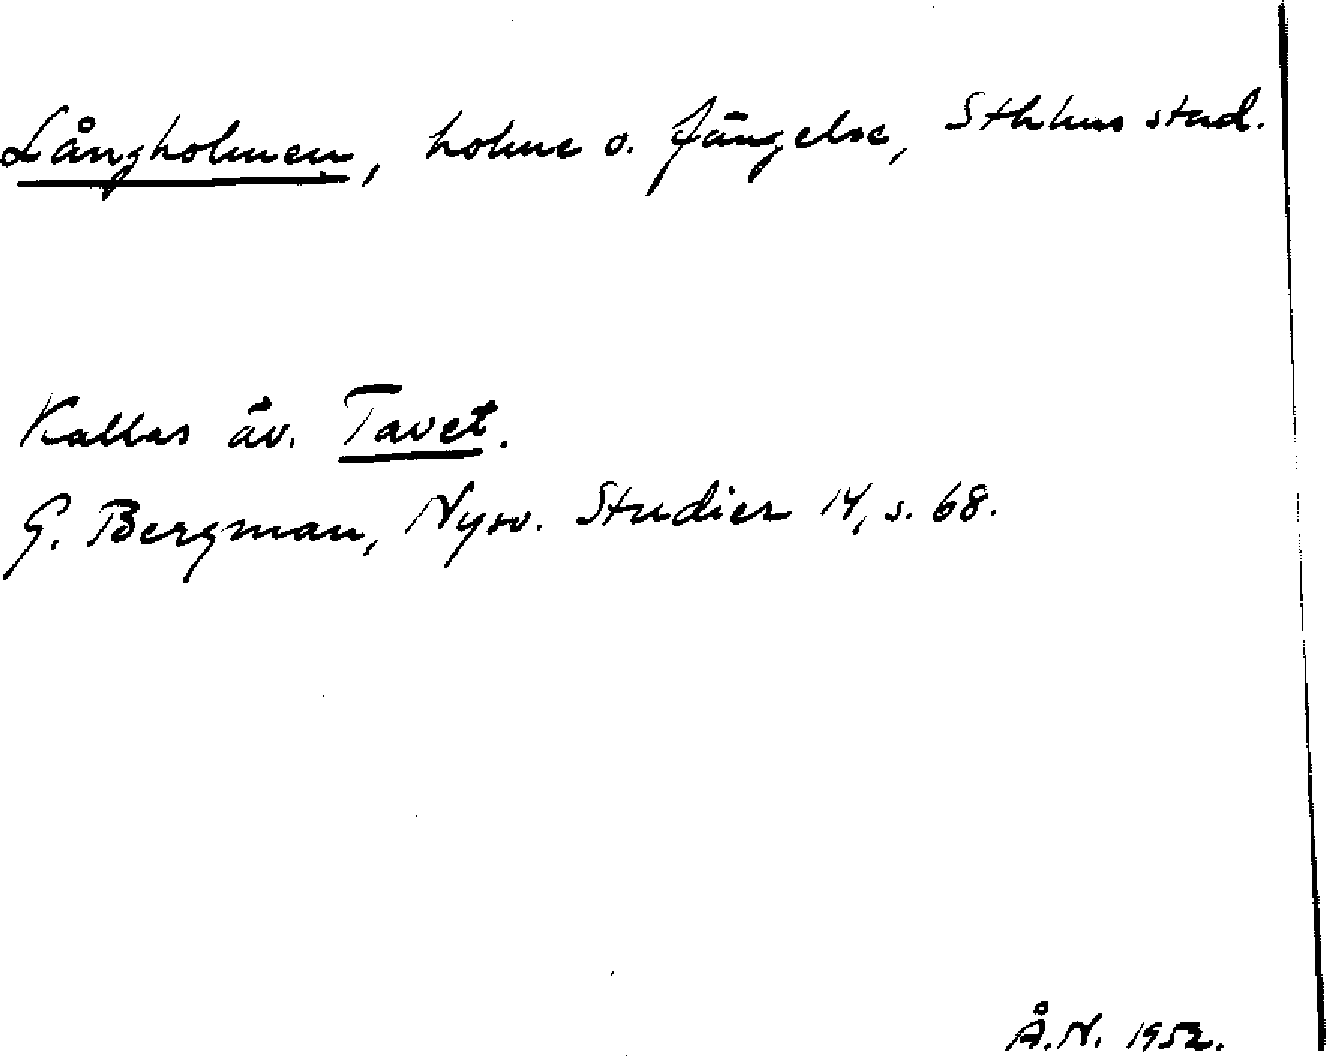 Långholmen, holme o. fängelse, Sthlms stad.
Kallas äv. Tavet.
G. Bergman, Nysv. Studier 14, s. 68.
Å.N. 1952.